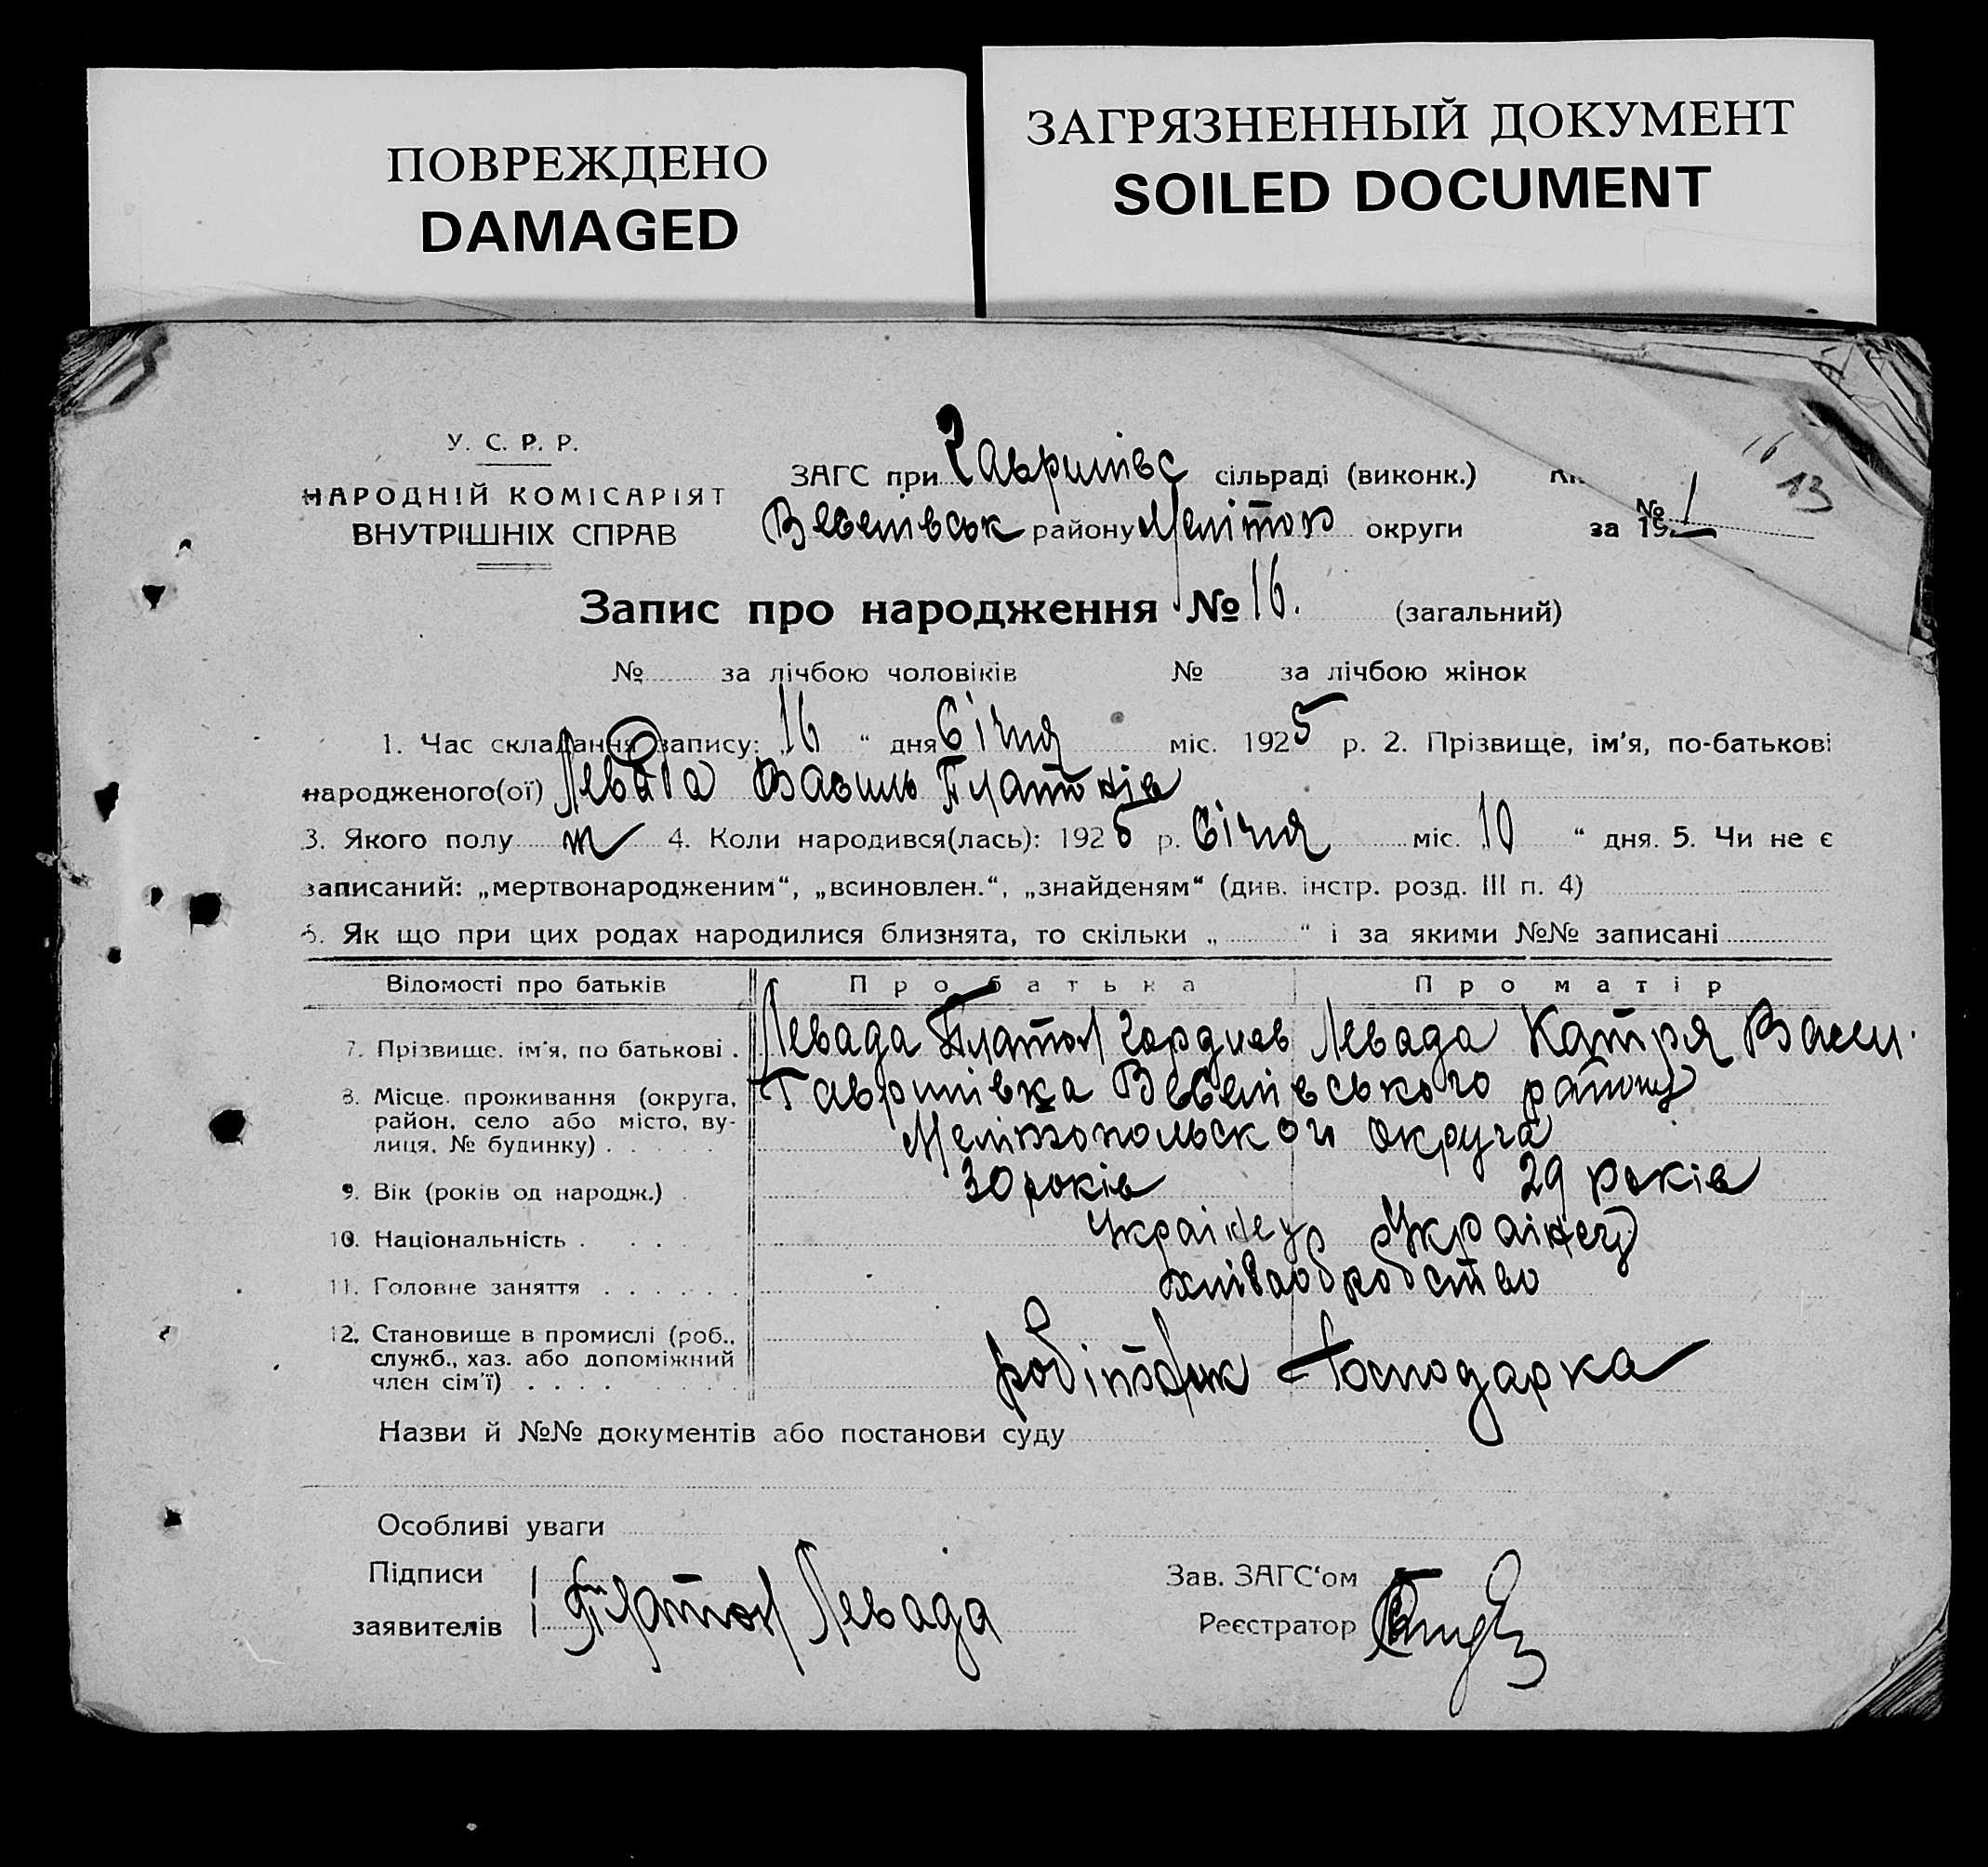 ПОВРЕЖДЕНО
DAMAGED
ЗАГРЯЗНЕННЫЙ ДОКУМЕНТ
SOILED DOCUMENT
16
13
У. С. Р. Р.
НАРОДНІЙ КОМІСАРІЯТ
ВНУТРІШНІХ СПРАВ
ЗАГС при Гаврилівс сільраді (виконк.)
Веселівськ району Мелітоп округи за 19
№ 1
Запис про народження № 16. (загальний)
№ за лічбою чоловіків № за лічбою жінок
1. Час складання запису: „16“ дня Січня міс. 1925 р. 2. Прізвище, ім'я, по-батькові
народженого(ої) Левада Василь Платонів
3. Якого полу 4. Коли народився(лась): 1925 р. Січня міс. 10 “ дня. 5. Чи не є
записаний: „мертвонародженим“, „всиновлен.“, „знайденям“ (див. інстр. розд. III п. 4)
6. Як що при цих родах народилися близнята, то скільки „ “ і за якими №№ записані
Відомості про батьків Про батька Про матір
7. Прізвище, ім'я, по батькові . Левада Платон Гордиев Левада Катря Васил.
8. Місце проживання (округа, Гаврилівка Веселівського району
район, село або місто, ву-
лиця, № будинку) . . . . . Мелітопольскои округа
9. Вік (років од народж.) . 30 років 29 років
10. Національність . . . Українец Українец
11. Головне заняття . . . . . . хліборобство
12. Становище в промислі (роб.,
служб., хаз. або допоміжний робітник Господарка
член сім'ї) . . . .
Назви й №№ документів або постанови суду
Особливі уваги
Підписи
заявителів Платон Левада
Зав. ЗАГС'ом
Реєстратор